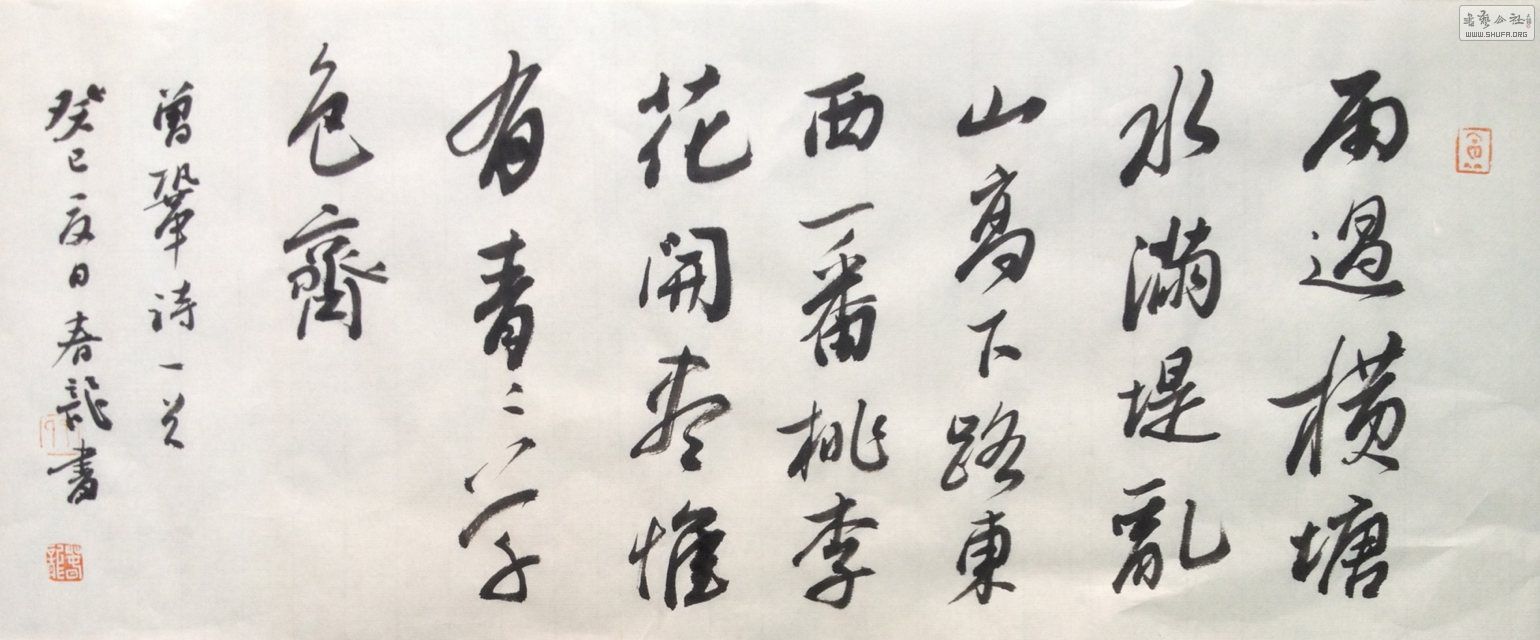 雨過橫塘
水滿堤亂
山高下路東
西一番桃李
花開盡惟
有青〻草
色齊
曾鞏詩一首
癸巳夏日春龍書
春龍
書藝公社
WWW.SHUFA.ORG